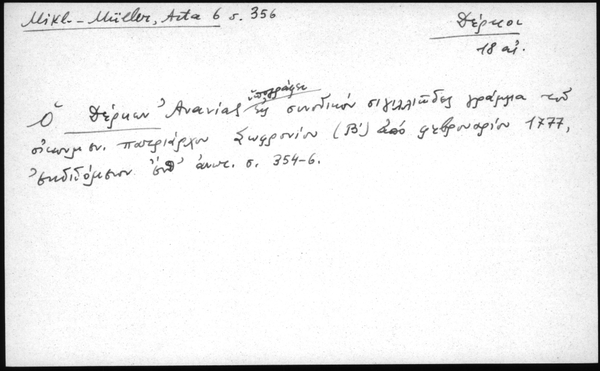 Mikl-Müller, Acta 6 σ. 356
Δέρκοι
18 αἰ.
Ὁ Δέρκων Ἀνανίας ὑπογράφει εἰς συνοδικόν σιγιλλιῶδες γράμμα τοῦ
οἰκουμεν. πατριάρχου Σωφρονίου (Β') ἀπό φεβρουαρίου 1777,
ἐκδιδόμενον ἀνωτ. σ. 354-6.